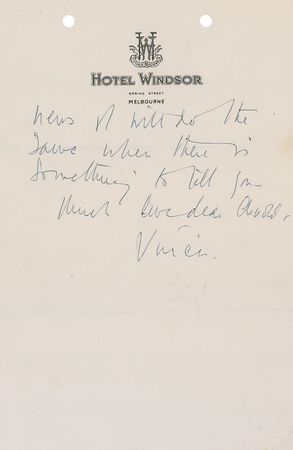 HOTEL WINDSOR
SPRING STREET
MELBOURNE
news & will do the
same when there is
something to tell you
Much love dear
Vivien.